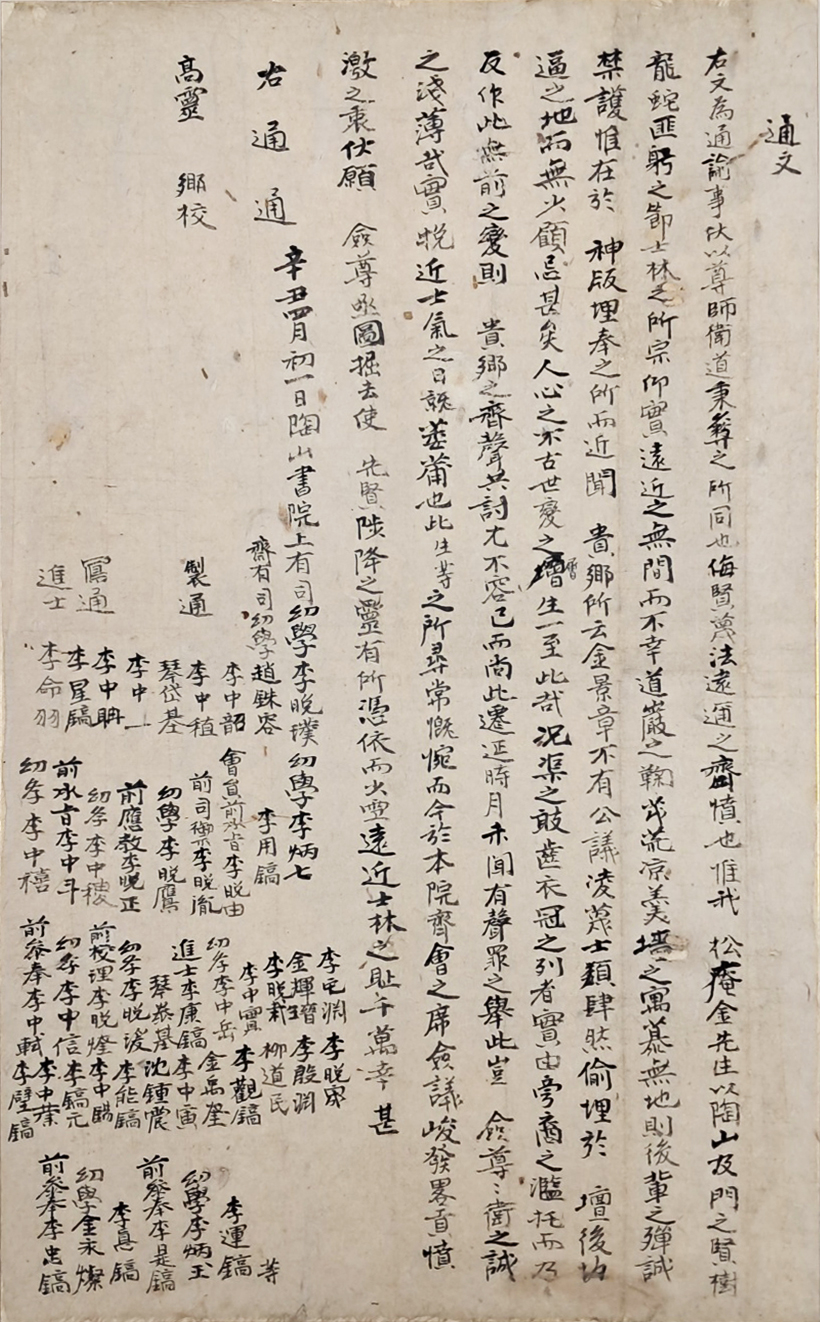 通文
右文為通諭事伏以尊師衛道秉彝之所同也侮賢蔑法遠邇之齊憤也惟我 松庵金先生以陶山及門之賢樹
龍蛇匪躬之節士林之所宗仰實遠近之無間而不幸道巖之鞠茂荒凉羹墻之寓慕無地則後輩之殫誠
禁護惟在於 神版埋奉之所而近聞 貴鄉所云金景章不有公議凌蔑士類肆然偷埋於 壇後
逼之地而無少顧忌甚矣人心之不古世變之層生一至此哉況渠之敢齒衣冠之列者實由旁裔之濫托而乃
反作此無前之變則 貴鄉之齊聲共討尤不容已而尚此遷延時月未聞有聲罪之舉此豈 僉尊尊衛之誠
之淺薄哉實晩近士氣之日就萎薾也此生等之所尋常慨惋而今於本院齊會之席僉議峻發畧貢憤
激之衷伏願 僉尊亟圖掘去使 先賢陟降之靈有所憑依而少雪遠近士林之恥千萬幸甚
右通通
高靈 鄉校
辛丑四月初一日陶山書院上有司幼學李晩璞幼學李炳七
齋有司幼學趙銖容
製通
李中韶
李中稙
琴岱基
李中一
寫通
李中冉
李星鎬
進士
李命羽
李用鎬
會員前水旨李晩由
前司禦李晩胤
幼學李晩鷹
前應敎李晩正
幼學李中稷
前水旨李中斗
幼學李中禧
李宅淵 李晩家
金輝瓚 李殷淵
李晩栽 柳道民
李中實 李觀鎬
幼學李中岳 金禹奎
進士李康鎬 李中寅
琴恭基 沈鍾震
幼學李晩浚 李能鎬
前校理李晩燈 李中賜
幼學李中信 李鎬元
前參奉李中軾 李中葉
李璧鎬
李運鎬 等
幼學李炳玉
前參奉李是鎬
李憙鎬
幼學金永燦
前參奉李忠鎬